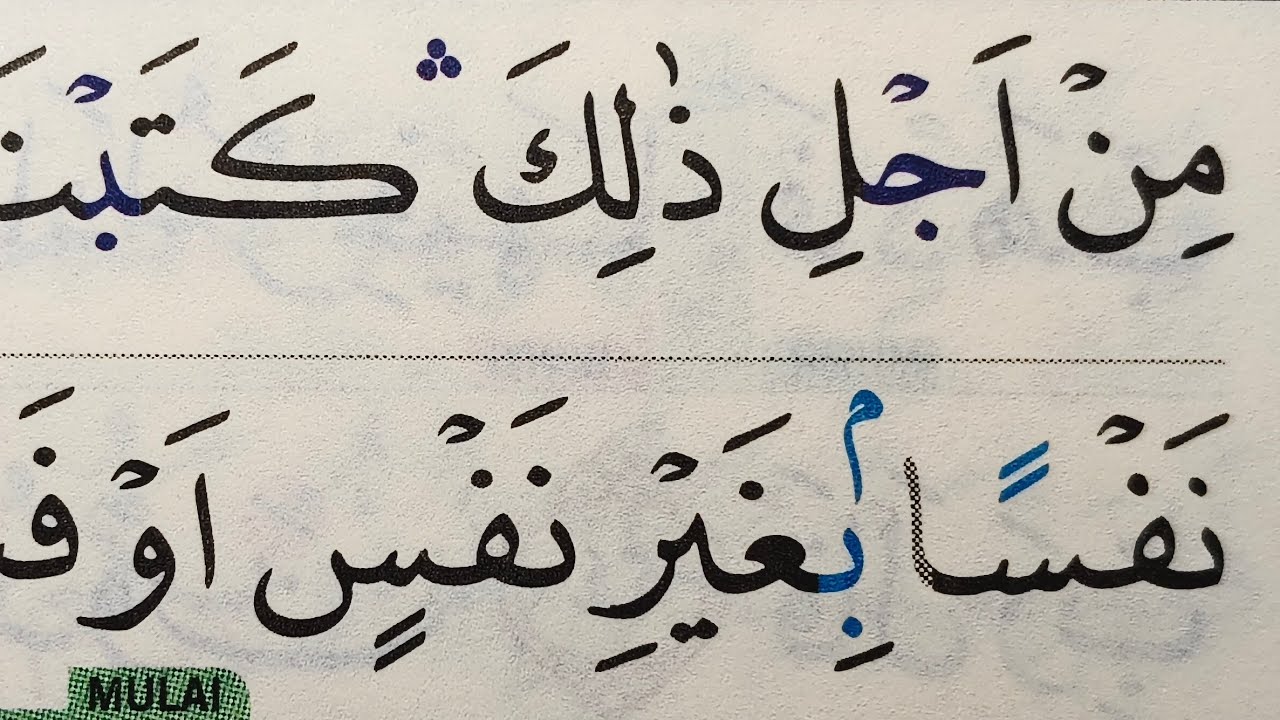 مِنْ اَجْلِ ذٰلِكَ ۛ كَتَبْنَ
نَفْسًاۢ بِغَيْرِ نَفْسٍ اَوْ فَ
MULAI